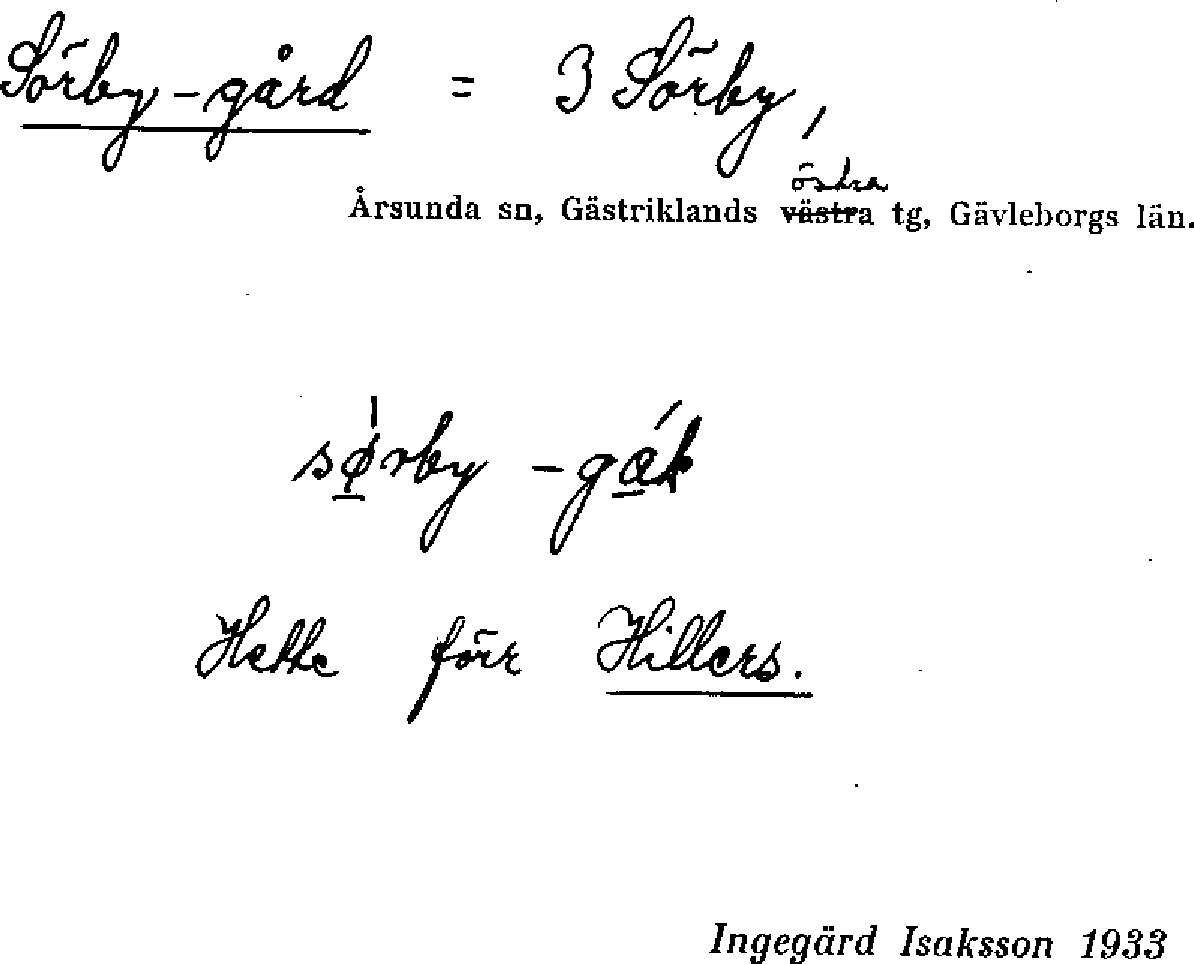 Sörby-gård = 3 Sörby,
östra
Årsunda sn, Gästriklands västra tg, Gävleborgs län.
sørby
Hette förr Hillers.
Ingegärd Isaksson 1933